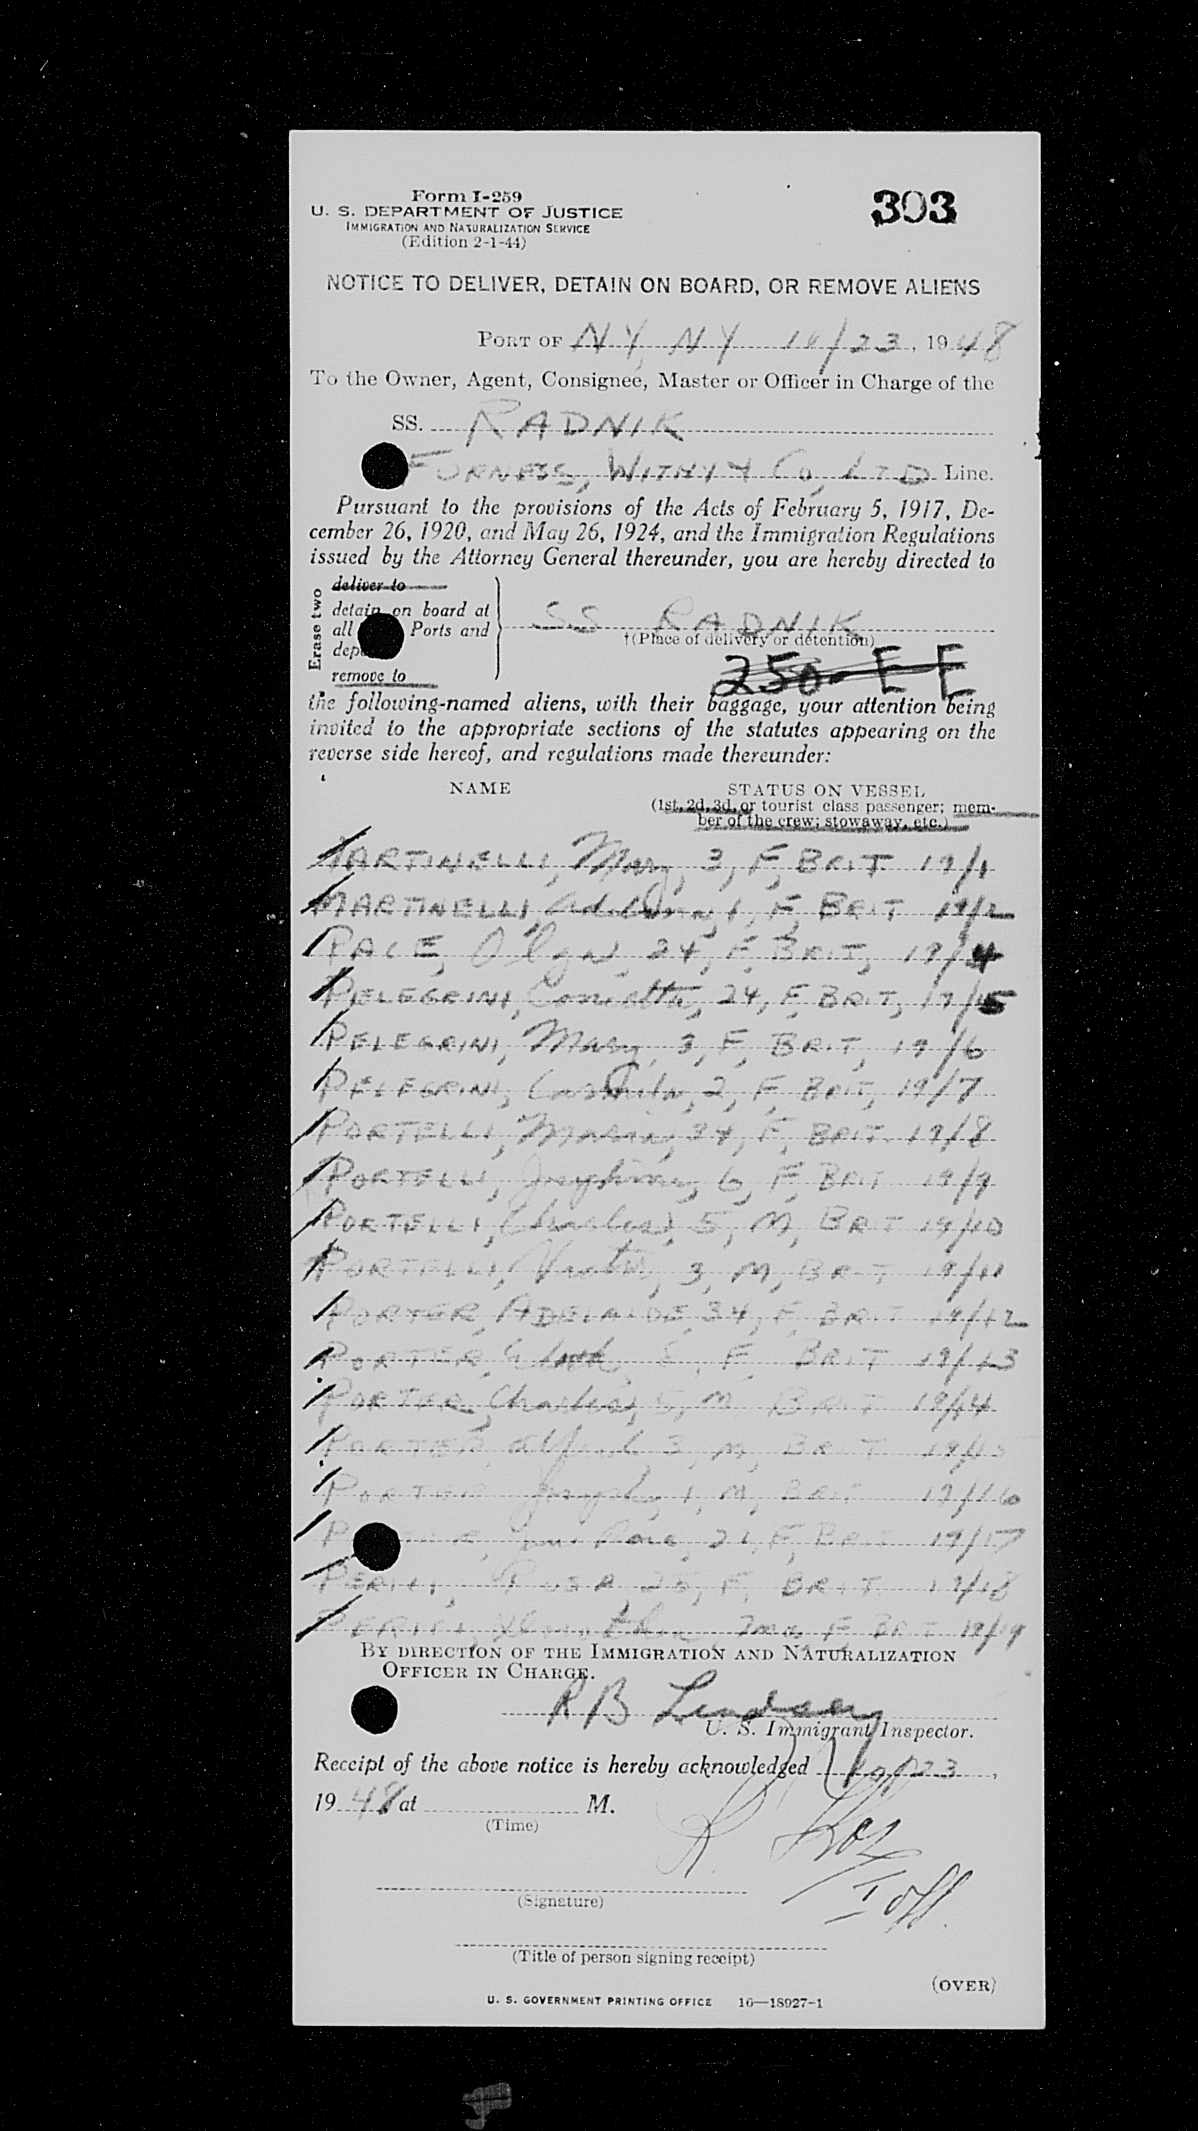 Form I-259
U. S. DEPARTMENT OF JUSTICE
IMMIGRATION AND NATURALIZATION SERVICE
(Edition 2-1-44)
303
NOTICE TO DELIVER, DETAIN ON BOARD, OR REMOVE ALIENS
PORT OF N.Y. N Y 10/23, 1948
To the Owner, Agent, Consignee, Master or Officer in Charge of the
SS. RADNIK
FURNESS, WITHY & Co, LTD Line.
Pursuant to the provisions of the Acts of February 5, 1917, De-
cember 26, 1920, and May 26, 1924, and the Immigration Regulations
issued by the Attorney General thereunder, you are hereby directed to
Erase two
deliver to
detain on board at
all Ports and
remove to
SS RADNIK
†(Place of delivery or detention)
250-EE
the following-named aliens, with their baggage, your attention being
invited to the appropriate sections of the statutes appearing on the
reverse side hereof, and regulations made thereunder:
NAME STATUS ON VESSEL
(1st, 2d, 3d, or tourist class passenger; mem-
ber of the crew; stowaway, etc.)
MARTINELLI, Mary, 3, F, BRIT 19/1
MARTINELLI, 1, F, BRIT 19/2
PACE, Olga, 24, F, BRIT, 19/4
PELEGRINI, 24, F, BRIT, 19/5
PELEGRINI, Mary, 3, F, BRIT, 19/6
PELEGRINI, 2, F BRIT, 19/7
PORTELLI, 34, F, BRIT. 19/8
PORTELLI, Josephine, 6, F, BRIT 19/9
PORTELLI, Charles, 5, M, BRIT 19/10
PORTELLI, 3, M, BRIT 19/11
PORTER, ADELAIDE 34, F BRIT 19/12
PORTER, F BRIT 19/13
PORTER, Charles, 5, M BRIT 19/14
PORTER, Alfred, 3, M, BRIT 19/15
PORTER Joseph, 1, M, BRIT 19/16
21, F, BRIT 19/17
PERICI, ROSA, 25, F, BRIT 19/18
PERICI, F BRIT 19/19
BY DIRECTION OF THE IMMIGRATION AND NATURALIZATION
OFFICER IN CHARGE.
R B Lindsay
U. S. Immigrant Inspector.
Receipt of the above notice is hereby acknowledged 10/23,
1948 at M.
(Time)
(Signature)
(Title of person signing receipt)
(OVER)
U. S. GOVERNMENT PRINTING OFFICE 16—18927-1